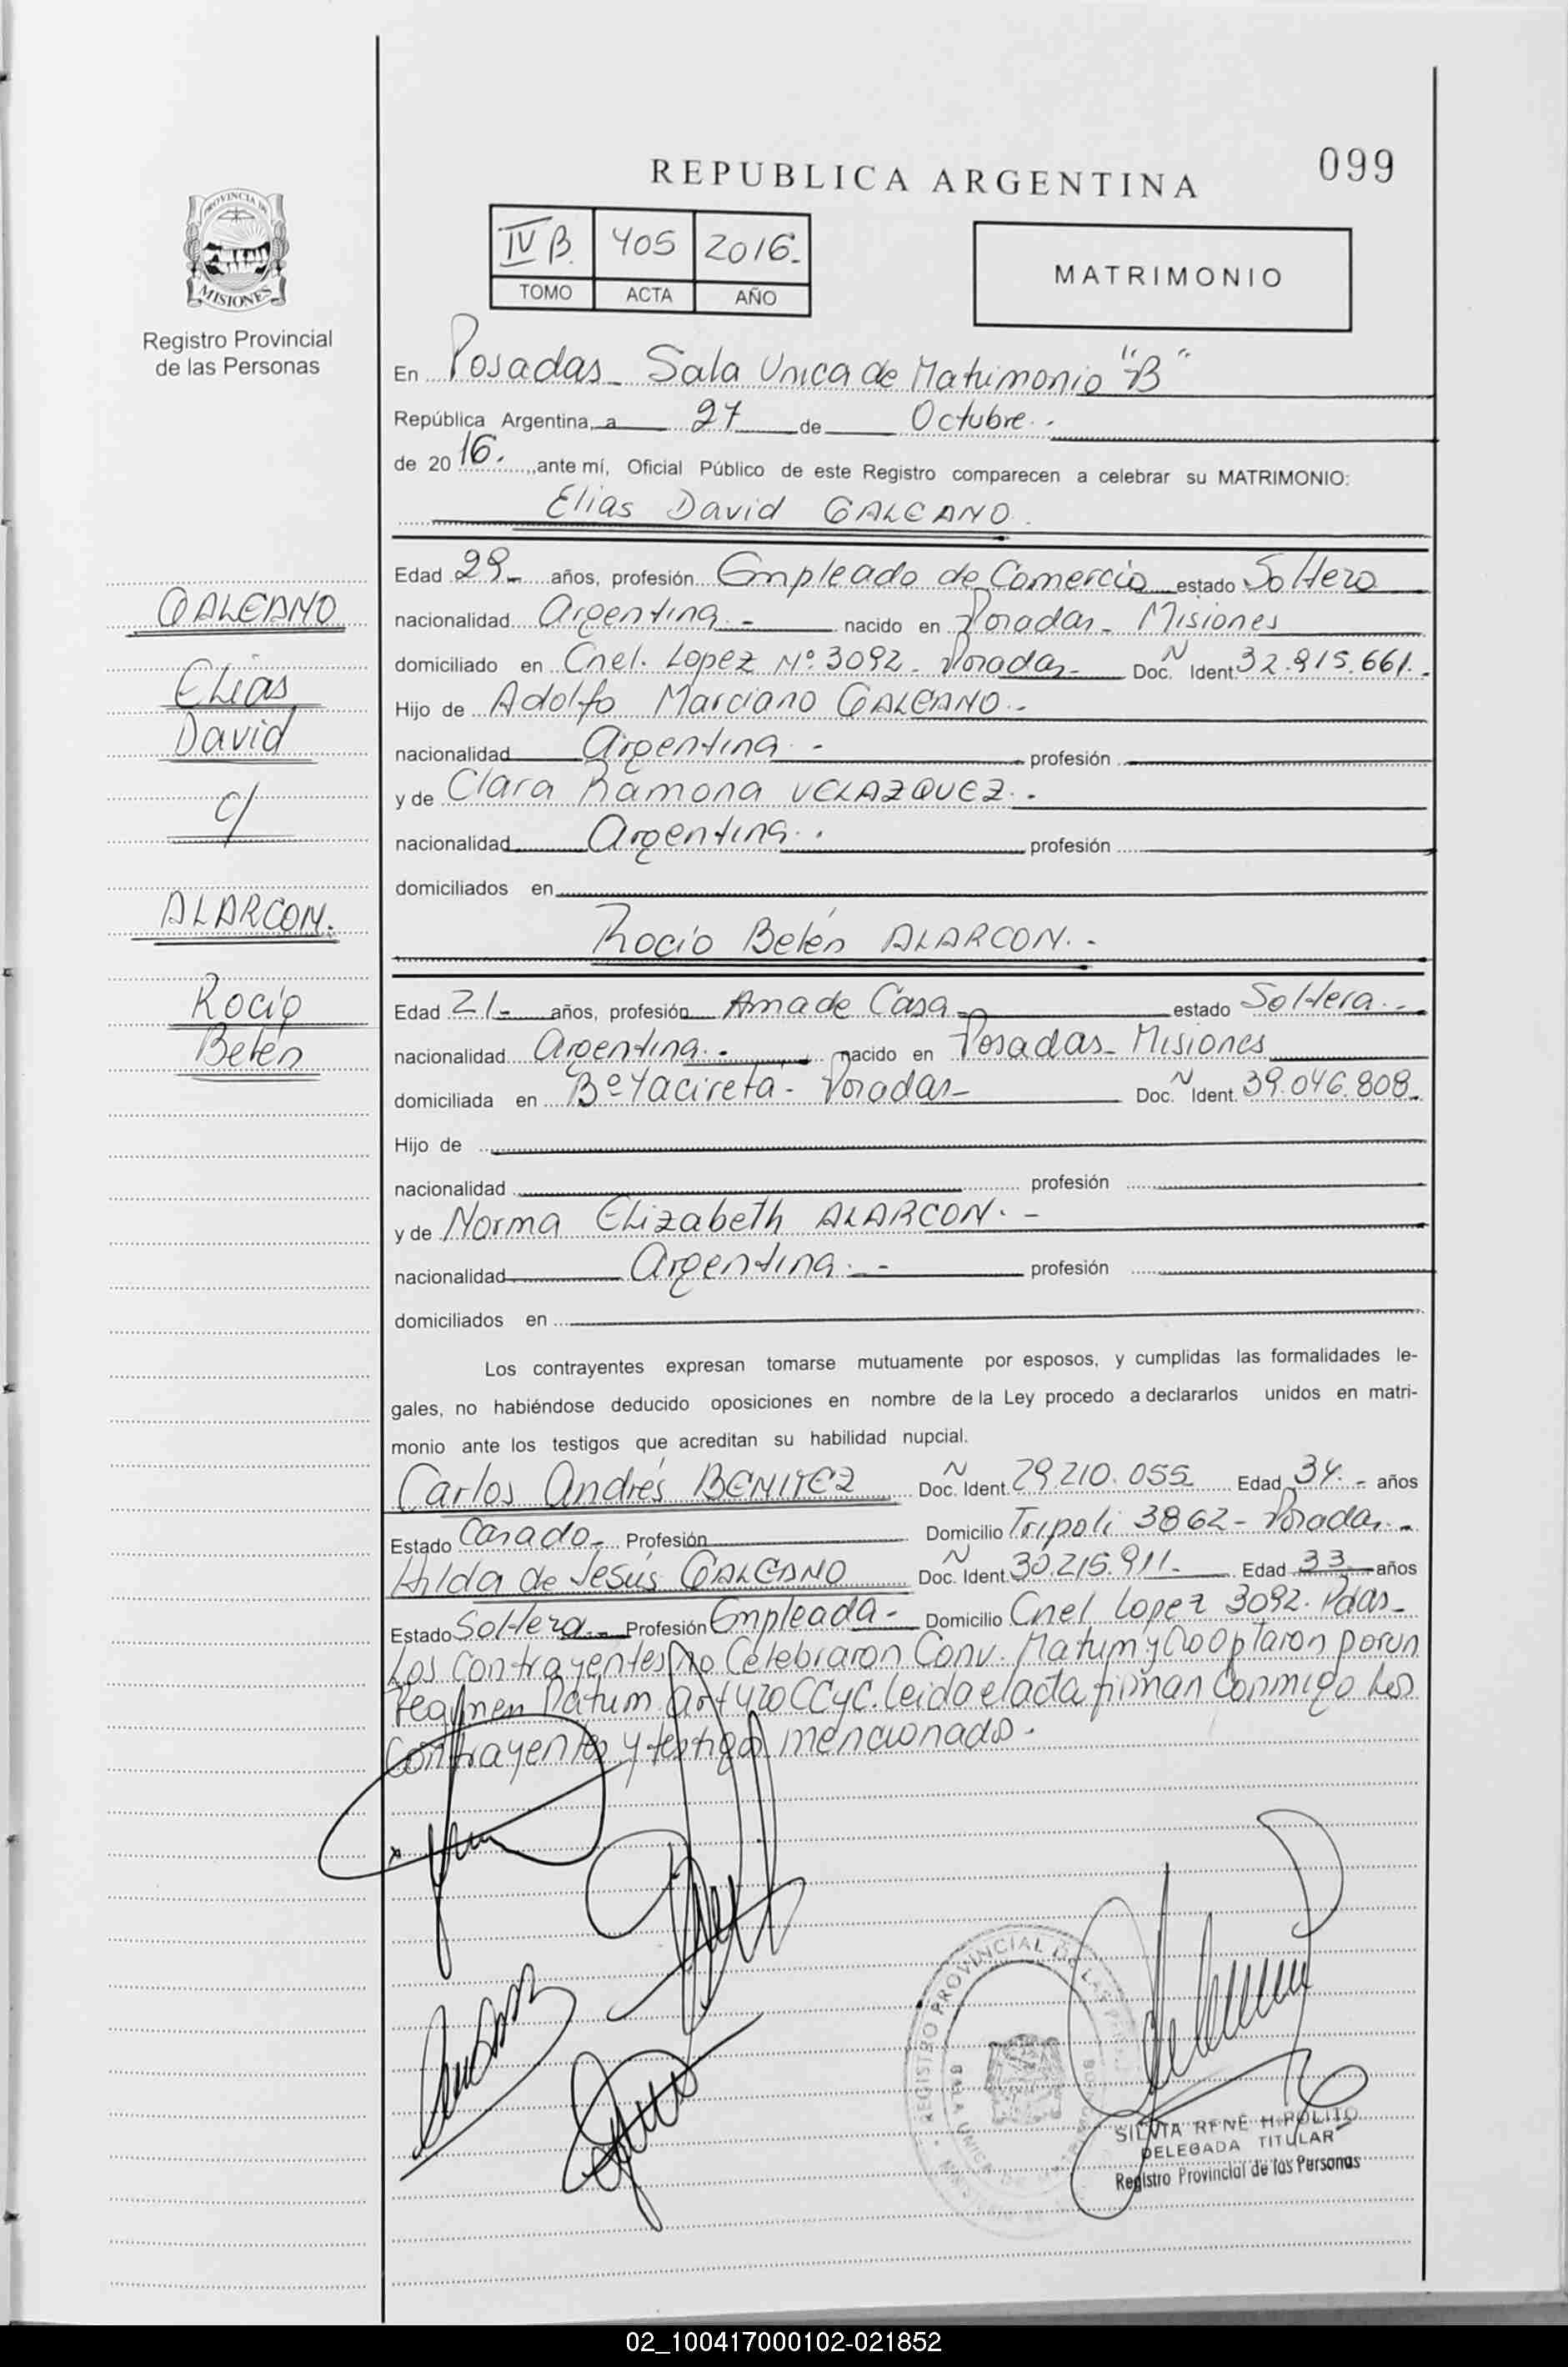 REPUBLICA ARGENTINA
099
PROVINCIA DE
MISIONES
Registro Provincial
de las Personas
IV B. 405 2016.-
TOMO ACTA AÑO
MATRIMONIO
En Posadas - Sala Unica de Matrimonio "B"
República Argentina, a 27 de Octubre.-
de 2016. ,ante mí, Oficial Público de este Registro comparecen a celebrar su MATRIMONIO:
Elias David GALEANO.
GALEANO
Elias
David
c/
ALARCON.
Rocío
Belén
Edad 29- años, profesión Empleado de Comercio estado Soltero
nacionalidad Argentina.- nacido en Posadas - Misiones
domiciliado en Cnel. Lopez Nº 3092 - Posadas- Doc. N Ident. 32.915.661.-
Hijo de Adolfo Marciano GALEANO.-
nacionalidad Argentina.- profesión
y de Clara Ramona VELAZQUEZ.-
nacionalidad Argentina.. profesión
domiciliados en
Rocío Belén ALARCON.-
Edad 21- años, profesión Ama de Casa estado Soltera.-
nacionalidad Argentina.- nacido en Posadas - Misiones
domiciliada en Bº Yacireta - Posadas- Doc. N Ident. 39.046.808.
Hijo de
nacionalidad profesión
y de Norma Elizabeth ALARCON.-
nacionalidad Argentina.- profesión
domiciliados en
Los contrayentes expresan tomarse mutuamente por esposos, y cumplidas las formalidades le-
gales, no habiéndose deducido oposiciones en nombre de la Ley procedo a declararlos unidos en matri-
monio ante los testigos que acreditan su habilidad nupcial.
Carlos Andrés BENITEZ Doc. N Ident. 29.210.055 Edad 34.- años
Estado Casado- Profesión Domicilio Tripoli 3862 - Posadas.-
Hilda de Jesús GALEANO Doc. N Ident. 30.215.911.- Edad 33 años
Estado Soltera- Profesión Empleada- Domicilio Cnel Lopez 3092. Pdas-
Los contrayentes no Celebraron Conv. Matrim y no optaron por un
Regimen Patrim art 420 CCyC. Leida el acta firman conmigo los
contrayentes y testigos mencionado.
REGISTRO PROVINCIAL DE LAS
SALA UNICA DE
SILVIA RENE HIPOLITO
DELEGADA TITULAR
Registro Provincial de las Personas
02_100417000102-021852